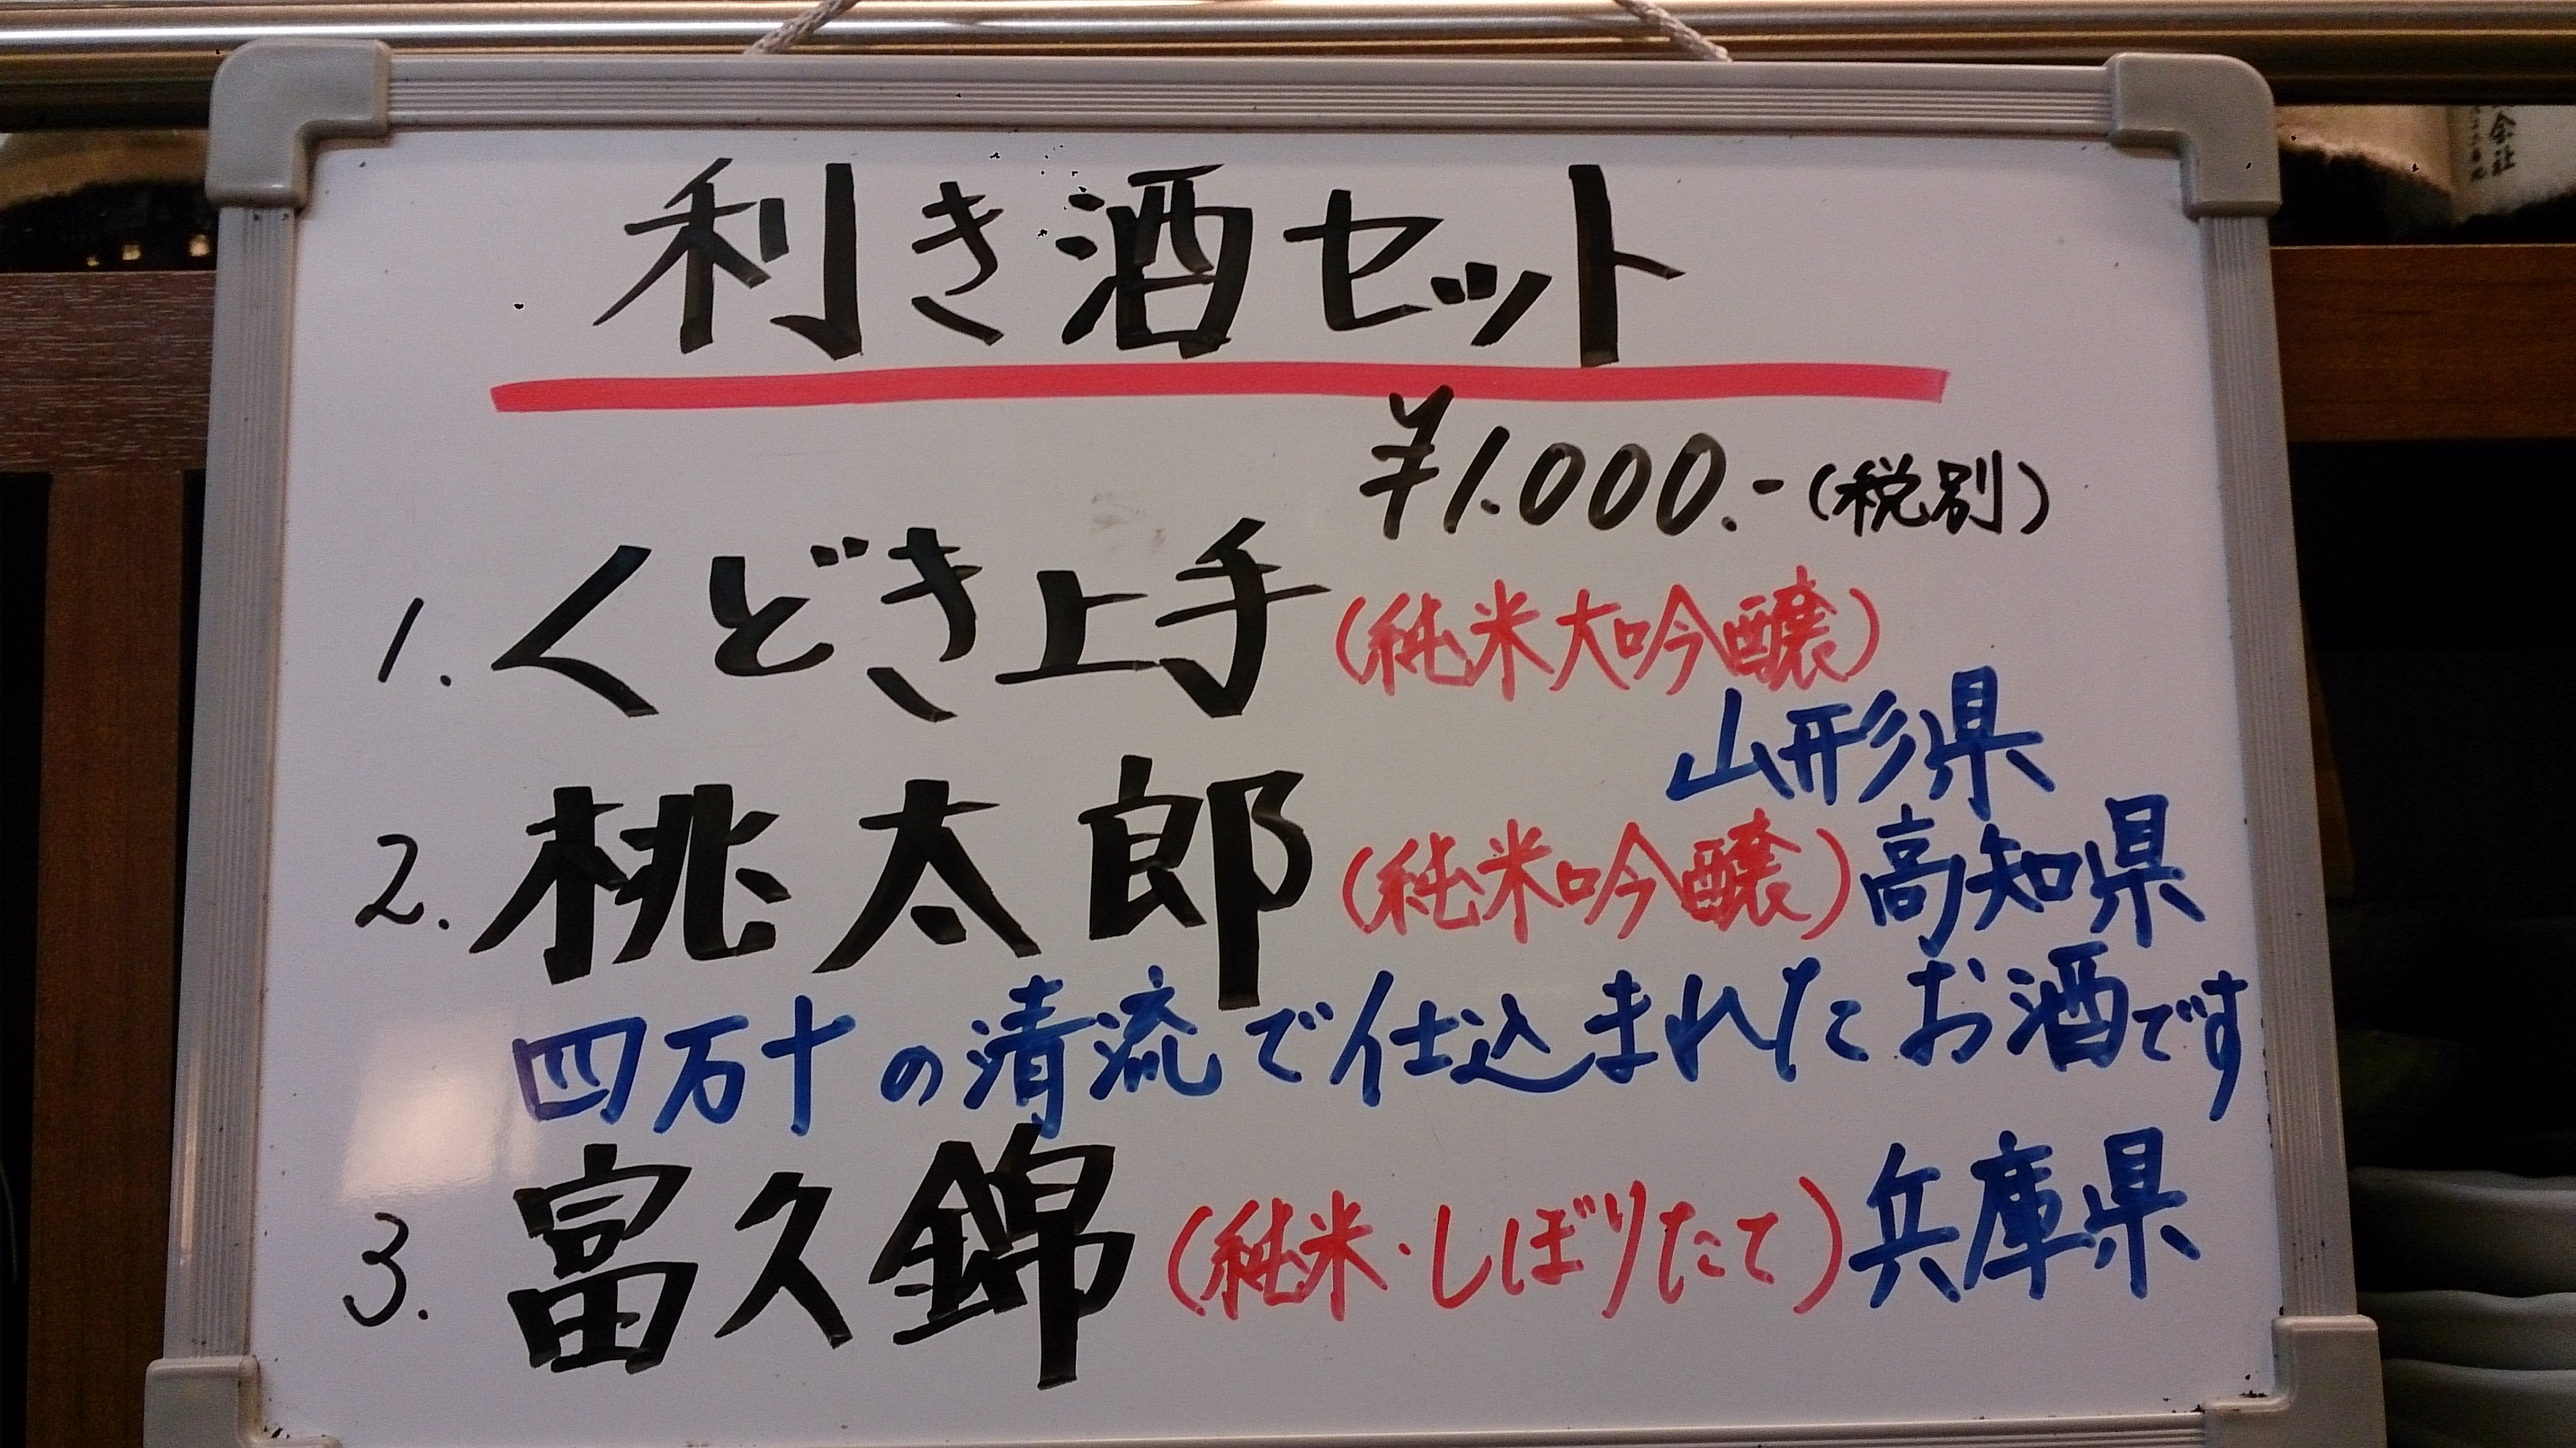 利き酒セット
¥1.000.-(税別)
1. くどき上手(純米大吟醸)
山形県
2. 桃太郎(純米吟醸)高知県
四万十の清流で仕込まれたお酒です
3. 富久錦(純米・しぼりたて)兵庫県
会社